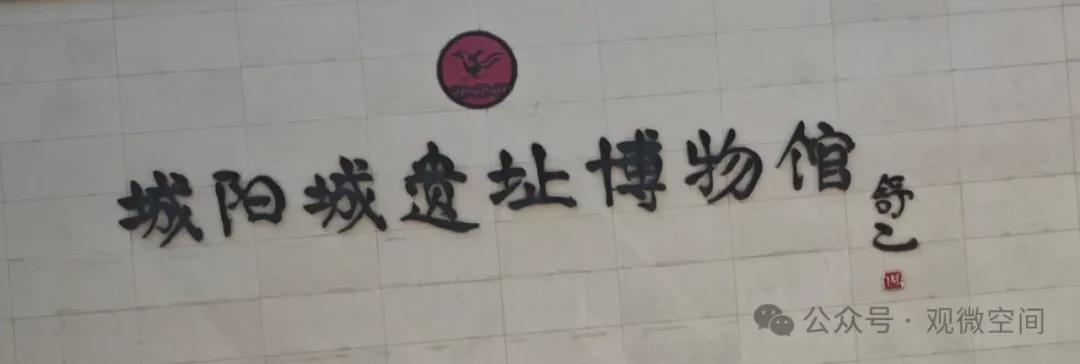 城阳城遗址博物馆
舒乙
公众号·观微空间